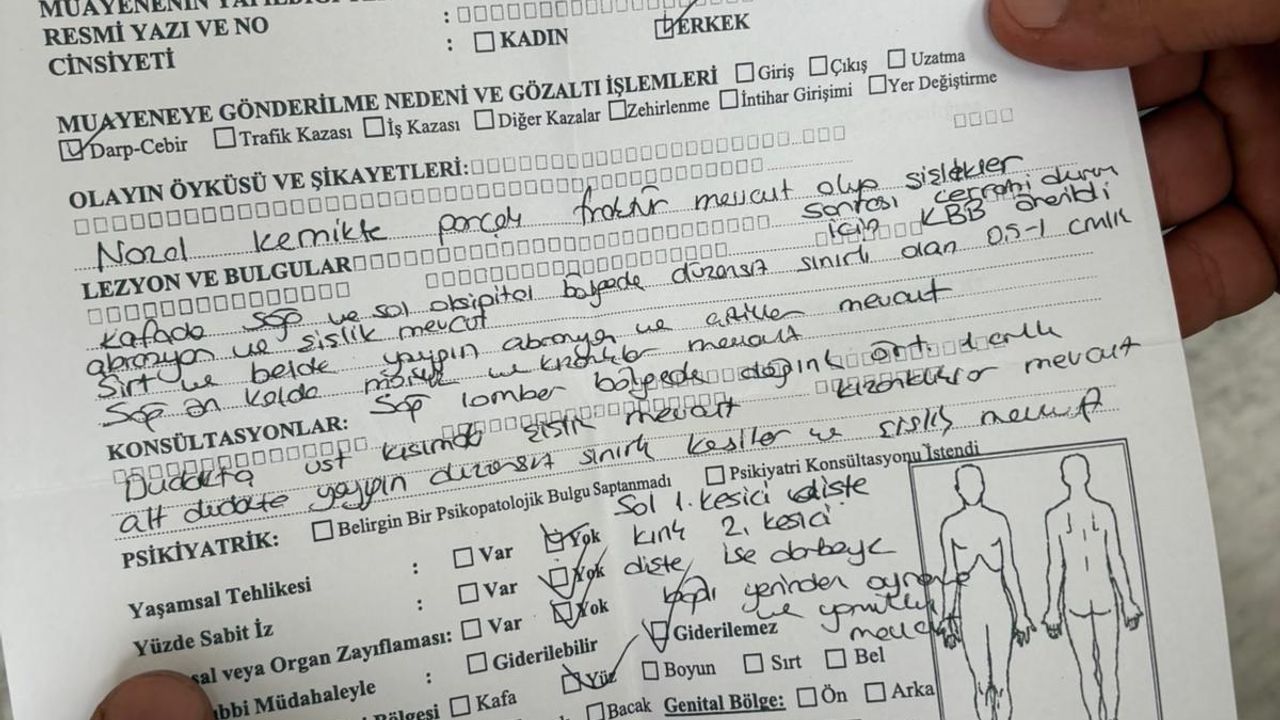 MUAYENENİN YAPILDIĞI
RESMİ YAZI VE NO :
CİNSİYETİ : KADIN ERKEK
MUAYENEYE GÖNDERİLME NEDENİ VE GÖZALTI İŞLEMLERİ Giriş Çıkış Uzatma
Darp-Cebir Trafik Kazası İş Kazası Diğer Kazalar Zehirlenme İntihar Girişimi Yer Değiştirme
OLAYIN ÖYKÜSÜ VE ŞİKAYETLERİ:
Nazal kemikte parçalı fraktür mevcut olup şişlikler
sonrası cerrahi durum
LEZYON VE BULGULAR için KBB önerildi
Kafada sağ ve sol oksipital bölgede düzensiz sınırlı olan 0.5-1 cmlik
abrazyon ve şişlik mevcut
Sırt ve belde yaygın abrazyon ve mevcut
Sağ ön kolda ve mevcut
KONSÜLTASYONLAR: Sağ lomber bölgede dağınık
Dudakta üst kısımda şişlik mevcut kızarıklıklar mevcut
alt dudakta yaygın düzensiz sınırlı kesiler ve şişlik mevcut
PSİKİYATRİK: Belirgin Bir Psikopatolojik Bulgu Saptanmadı Psikiyatri Konsültasyonu İstendi
Sol 1. kesici dişte
Yaşamsal Tehlikesi : Var Yok kırık 2. kesici
Yüzde Sabit İz : Var Yok dişte ise darbeye
sal veya Organ Zayıflaması: Var Yok bağlı yerinden
ve mevcut
bbi Müdahaleyle : Giderilebilir Giderilemez
Bölgesi Kafa Yüz Boyun Sırt Bel
Bacak Genital Bölge: Ön Arka